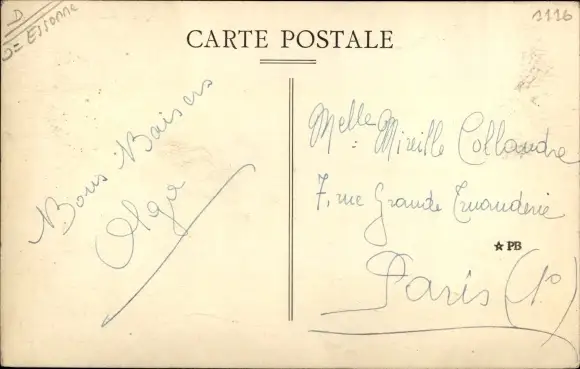 D
Essonne
1116
CARTE POSTALE
Bons Baisers
Olga
Melle Mireille Collandre
7, rue Grande Truanderie
☆ PB
Paris (1º)